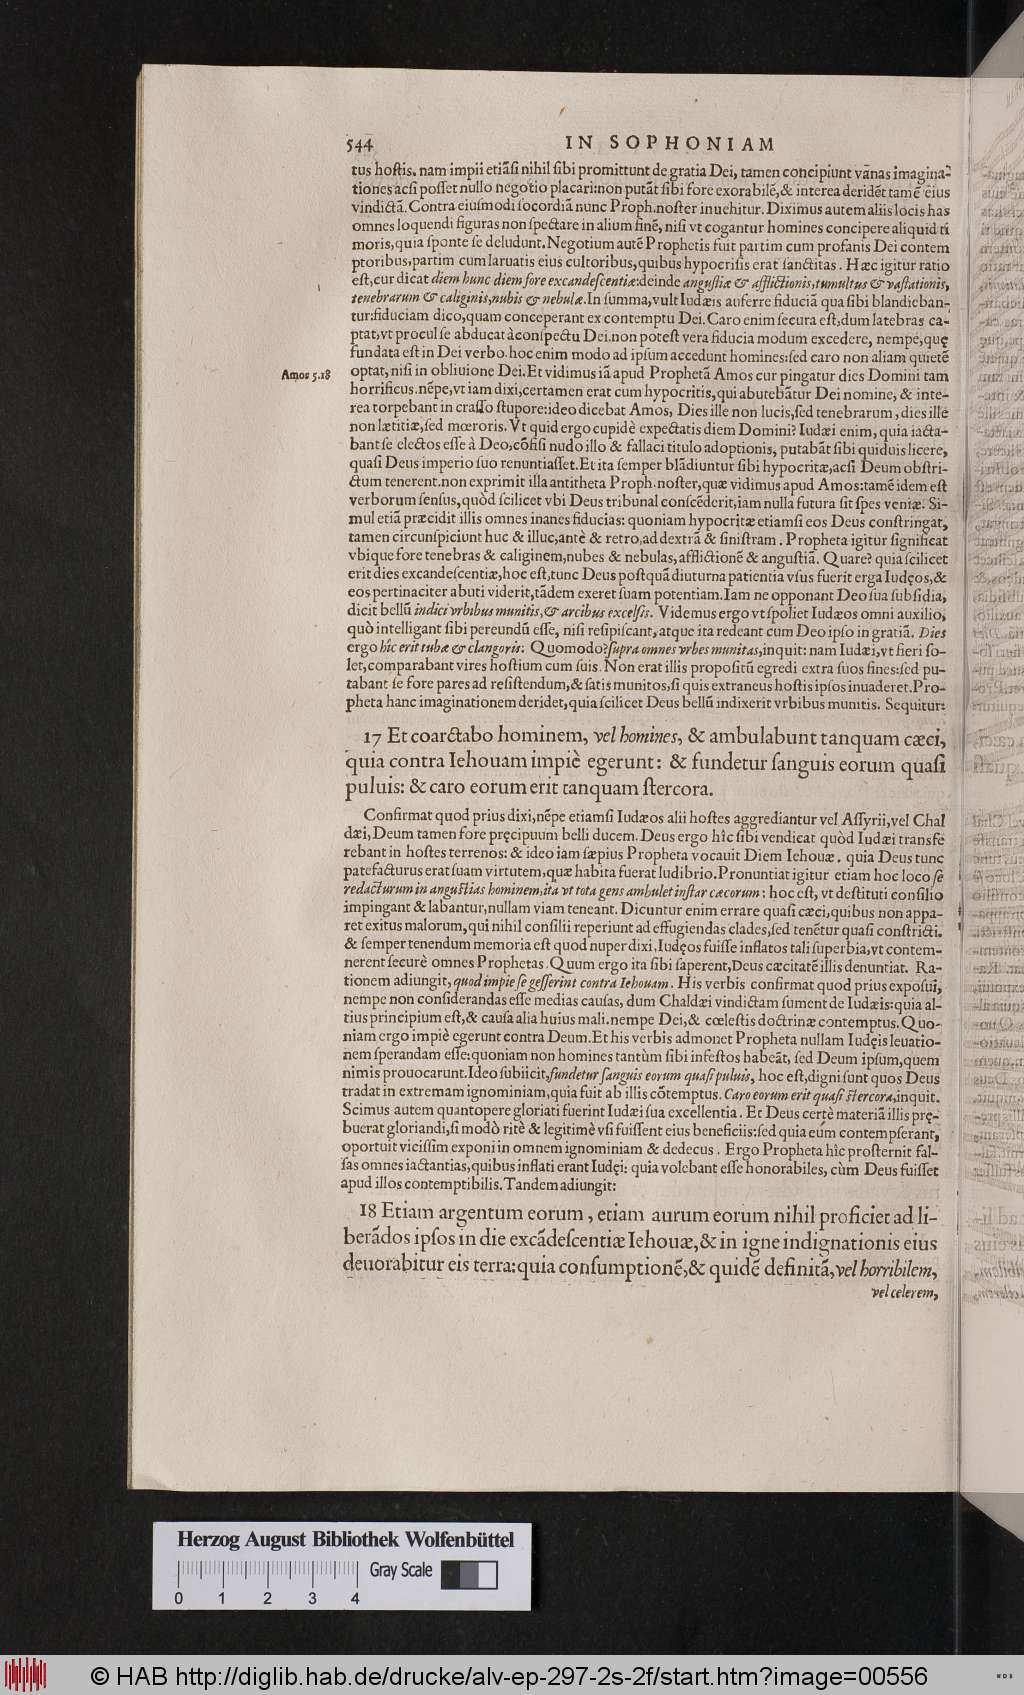 544 IN SOPHONIAM
tus hoſtis. nam impii etiãſi nihil ſibi promittunt de gratia Dei, tamen concipiunt vanas imagina-
tiones acſi poſſet nullo negotio placari: non putãt ſibi fore exorabilẽ, & interea deridẽt tamẽ eius
vindictã. Contra eiuſmodi ſocordiã nunc Proph. noſter inuehitur. Diximus autem aliis locis has
omnes loquendi figuras non ſpectare in alium finẽ, niſi vt cogantur homines concipere aliquid ti
moris, quia ſponte ſe deludunt. Negotium autẽ Prophetis fuit partim cum profanis Dei contem
ptoribus, partim cum laruatis eius cultoribus, quibus hypocriſis erat ſanctitas. Hæc igitur ratio
eſt, cur dicat diem hunc diem fore excandeſcentiæ: deinde anguſtiæ & afflictionis, tumultus & vaſtationis,
tenebrarum & caliginis, nubis & nebulæ. In ſumma, vult Iudæis auferre fiduciã qua ſibi blandieban-
tur: fiduciam dico, quam conceperant ex contemptu Dei. Caro enim ſecura eſt, dum latebras ca-
ptat, vt procul ſe abducat à conſpectu Dei. non poteſt vera fiducia modum excedere, nempe, quę
fundata eſt in Dei verbo. hoc enim modo ad ipſum accedunt homines: ſed caro non aliam quietẽ
Amos 5.18
optat, niſi in obliuione Dei. Et vidimus iã apud Prophetã Amos cur pingatur dies Domini tam
horrificus. nẽpe, vt iam dixi, certamen erat cum hypocritis, qui abutebãtur Dei nomine, & inte-
rea torpebant in craſſo ſtupore: ideo dicebat Amos, Dies ille non lucis, ſed tenebrarum, dies ille
non lætitiæ, ſed mœroris. Vt quid ergo cupidè expectatis diem Domini? Iudæi enim, quia iacta-
bant ſe electos eſſe à Deo, cõfiſi nudo illo & fallaci titulo adoptionis, putabãt ſibi quiduis licere,
quaſi Deus imperio ſuo renuntiaſſet. Et ita ſemper blãdiuntur ſibi hypocritæ, acſi Deum obſtri-
ctum tenerent. non exprimit illa antitheta Proph. noſter, quæ vidimus apud Amos: tamẽ idem eſt
verborum ſenſus, quòd ſcilicet vbi Deus tribunal conſcẽderit, iam nulla futura ſit ſpes veniæ. Si-
mul etiã præcidit illis omnes inanes fiducias: quoniam hypocritæ etiamſi eos Deus conſtringat,
tamen circunſpiciunt huc & illuc, antè & retro, ad dextrã & ſiniſtram. Propheta igitur ſignificat
vbique fore tenebras & caliginem, nubes & nebulas, afflictionẽ & anguſtiã. Quare? quia ſcilicet
erit dies excandeſcentiæ, hoc eſt, tunc Deus poſtquã diuturna patientia vſus fuerit erga Iudęos, &
eos pertinaciter abuti viderit, tãdem exeret ſuam potentiam. Iam ne opponant Deo ſua ſubſidia,
dicit bellũ indici vrbibus munitis, & arcibus excelſis. Videmus ergo vt ſpoliet Iudæos omni auxilio,
quò intelligant ſibi pereundũ eſſe, niſi reſipiſcant, atque ita redeant cum Deo ipſo in gratiã. Dies
ergo hîc erit tubæ & clangoris: Quomodo? ſupra omnes vrbes munitas, inquit: nam Iudæi, vt fieri ſo-
let, comparabant vires hoſtium cum ſuis. Non erat illis propoſitũ egredi extra ſuos fines: ſed pu-
tabant ſe fore pares ad reſiſtendum, & ſatis munitos, ſi quis extraneus hoſtis ipſos inuaderet. Pro-
pheta hanc imaginationem deridet, quia ſcilicet Deus bellũ indixerit vrbibus munitis. Sequitur:
17 Et coarctabo hominem, vel homines, & ambulabunt tanquam cæci,
quia contra Iehouam impiè egerunt: & fundetur ſanguis eorum quaſi
puluis: & caro eorum erit tanquam ſtercora.
Confirmat quod prius dixi, nẽpe etiamſi Iudæos alii hoſtes aggrediantur vel Aſſyrii, vel Chal
dæi, Deum tamen fore pręcipuum belli ducem. Deus ergo hîc ſibi vendicat quòd Iudæi transfe
rebant in hoſtes terrenos: & ideo iam ſæpius Propheta vocauit Diem Iehouæ. quia Deus tunc
patefacturus erat ſuam virtutem, quæ habita fuerat ludibrio. Pronuntiat igitur etiam hoc loco ſe
redacturum in anguſtias hominem, ita vt tota gens ambulet inſtar cæcorum: hoc eſt, vt deſtituti conſilio
impingant & labantur, nullam viam teneant. Dicuntur enim errare quaſi cæci, quibus non appa-
ret exitus malorum, qui nihil conſilii reperiunt ad effugiendas clades, ſed tenẽtur quaſi conſtricti.
& ſemper tenendum memoria eſt quod nuper dixi, Iudęos fuiſſe inflatos tali ſuperbia, vt contem-
nerent ſecurè omnes Prophetas. Quum ergo ita ſibi ſaperent, Deus cæcitatẽ illis denuntiat. Ra-
tionem adiungit, quod impie ſe geſſerint contra Iehouam. His verbis confirmat quod prius expoſui,
nempe non conſiderandas eſſe medias cauſas, dum Chaldæi vindictam ſument de Iudæis: quia al-
tius principium eſt, & cauſa alia huius mali. nempe Dei, & cœleſtis doctrinæ contemptus. Quo-
niam ergo impiè egerunt contra Deum. Et his verbis admonet Propheta nullam Iudęis leuatio-
nem ſperandam eſſe: quoniam non homines tantùm ſibi infeſtos habeãt, ſed Deum ipſum, quem
nimis prouocarunt. Ideo ſubiicit, fundetur ſanguis eorum quaſi puluis, hoc eſt, digni ſunt quos Deus
tradat in extremam ignominiam, quia fuit ab illis cõtemptus. Caro eorum erit quaſi ſtercora, inquit.
Scimus autem quantopere gloriati fuerint Iudæi ſua excellentia. Et Deus certè materiã illis prę-
buerat gloriandi, ſi modò ritè & legitimè vſi fuiſſent eius beneficiis: ſed quia eum contempſerant,
oportuit viciſſim exponi in omnem ignominiam & dedecus. Ergo Propheta hîc proſternit fal-
ſas omnes iactantias, quibus inflati erant Iudęi: quia volebant eſſe honorabiles, cùm Deus fuiſſet
apud illos contemptibilis. Tandem adiungit:
18 Etiam argentum eorum, etiam aurum eorum nihil proficiet ad li-
berãdos ipſos in die excãdeſcentiæ Iehouæ, & in igne indignationis eius
deuorabitur eis terra: quia conſumptionẽ, & quidẽ definitã, vel horribilem,
vel celerem,
Herzog August Bibliothek Wolfenbüttel
Gray Scale
0 1 2 3 4
© HAB http://diglib.hab.de/drucke/alv-ep-297-2s-2f/start.htm?image=00556